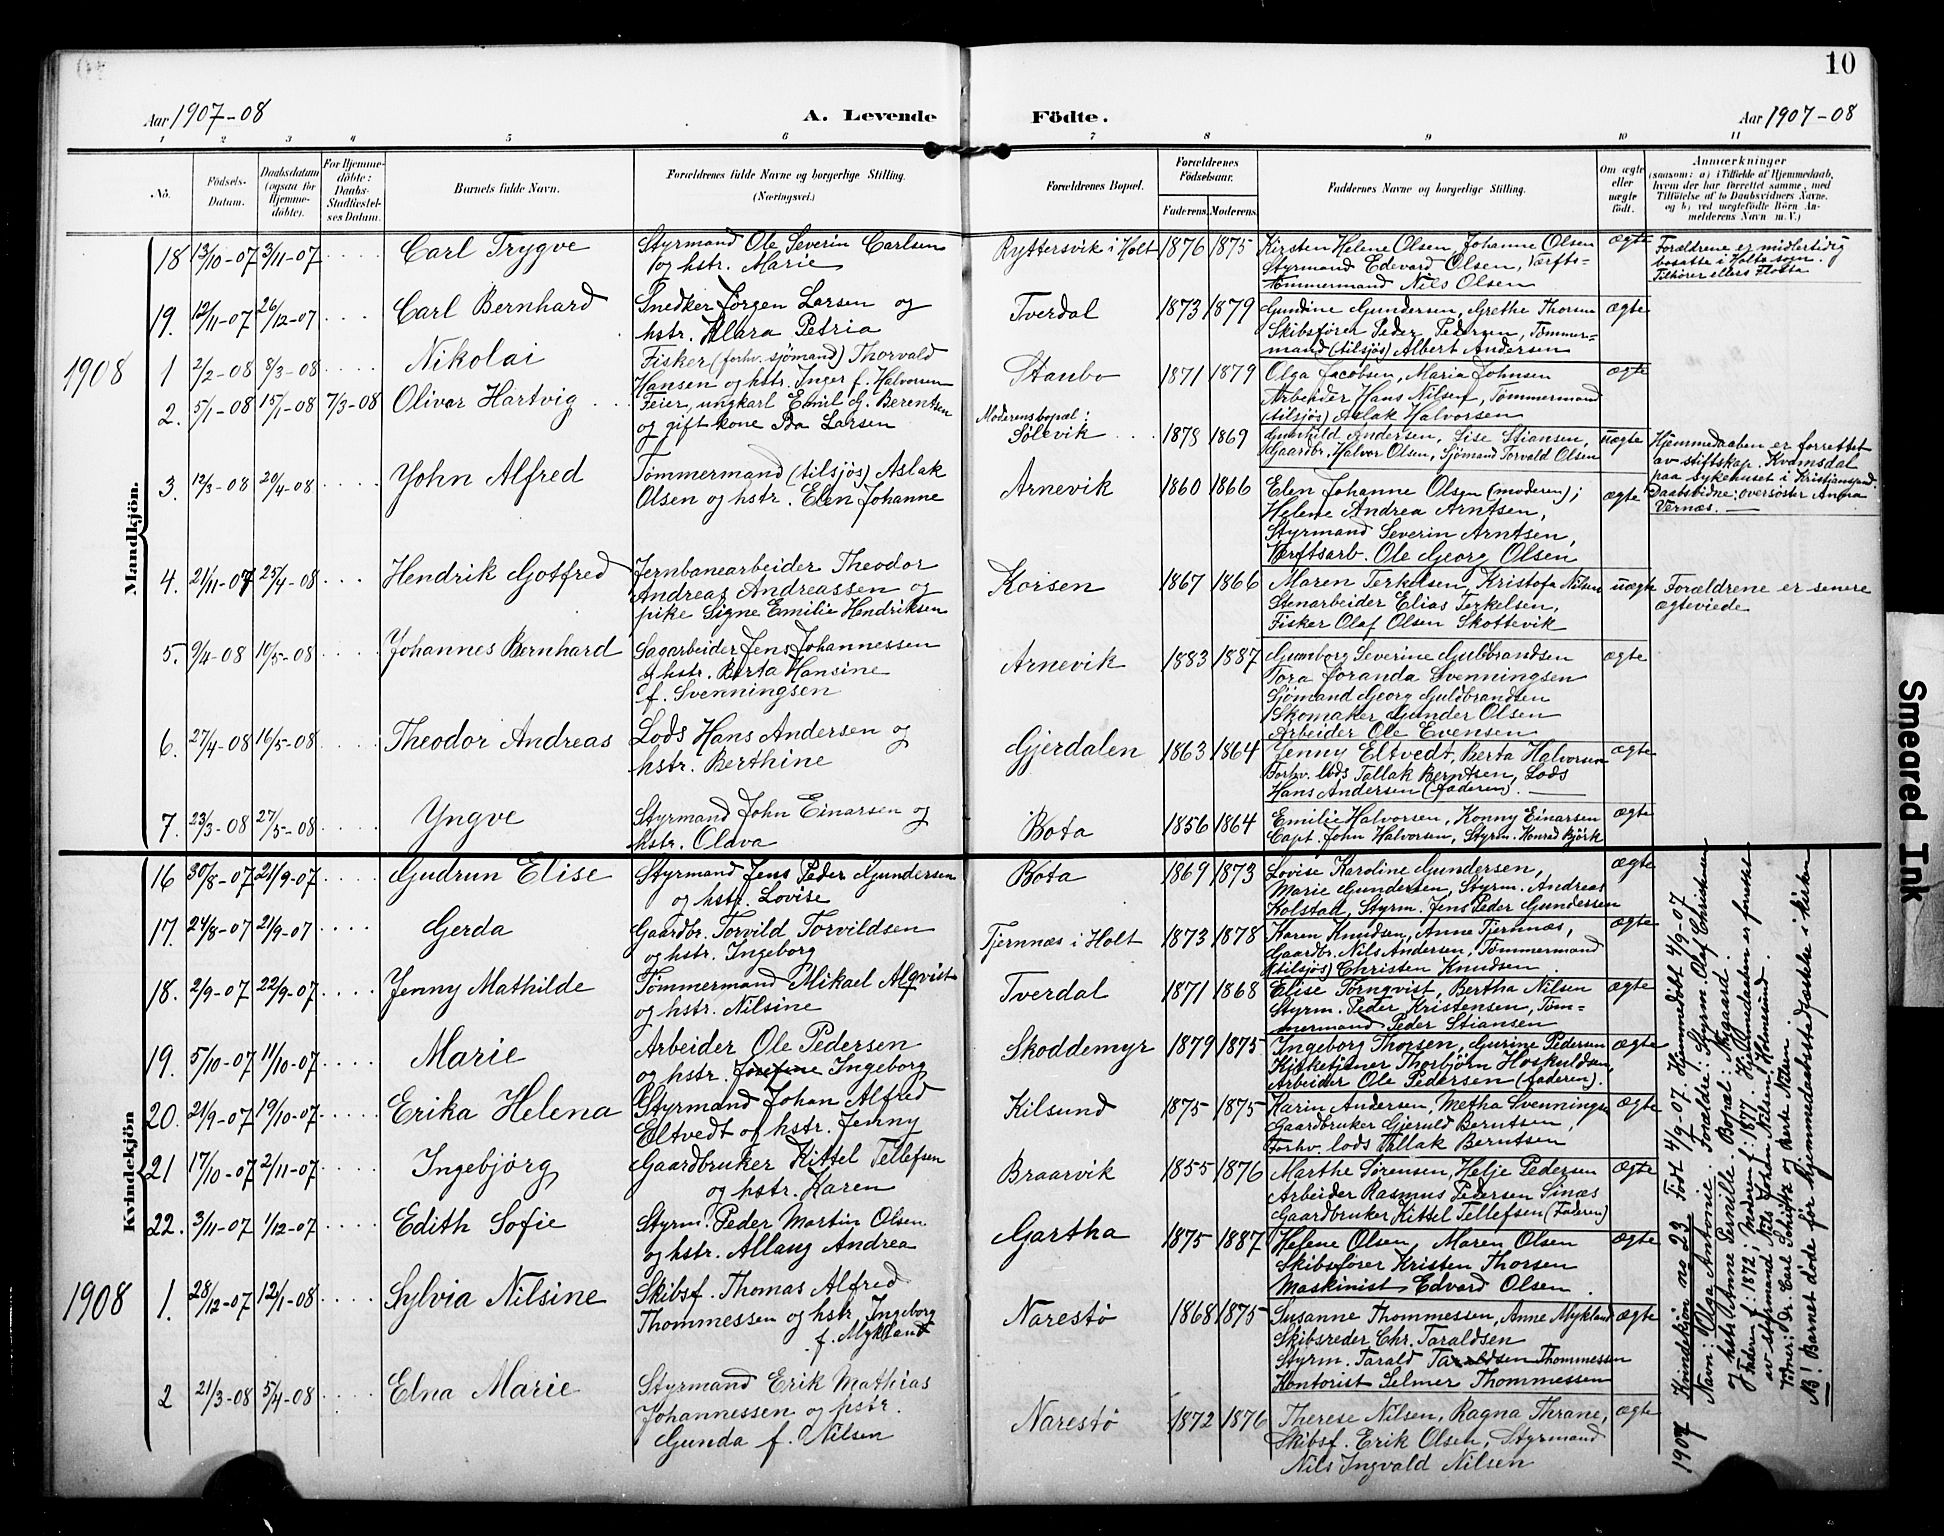 10
Aar 1907-08
A. Levende
Födte.
Aar 1907-08
1 2 3 4 5 6 7 8 9 10 11
No.
Födsels-Datum.
Daabsdatum (ogsaa for Hjemme-döbte).
For Hjemme-döbte: Daabs-Stadfæstel-ses Datum.
Barnets fulde Navn.
Forældrenes fulde Navne og borgerlige Stilling. (Næringsvei.)
Forældrenes Bopæl.
Forældrenes Födselsaar.
Faderens. Moderens.
Faddernes Navne og borgerlige Stilling.
Om ægte eller uægte födt.
Anmærkninger
(saasom: a) i Tilfælde af Hjemmedaab, hvem der har forrettet samme, med Tilföielse af to Daabsvidners Navne, og b) ved uægtefödte Börn An-melderens Navn m. V.)
Mandkjön.
18 13/10-07 3/11-07 .... Carl Trygve
Styrmand Ole Severin Carlsen
og hstr. Marie
Ryttersvik i Holt 1876 1875
Kirsten Helene Olsen, Johanne Olsen
Styrmand Edevard Olsen, Værfts-
tömmermand Nils Olsen
ægte
Forældrene er midlertidig
bosatte i Holts sogn.
Tilhører ellers Flosta
19. 12/11-07 26/12-07 .... Carl Bernhard
Snedker Jörgen Larsen og
hstr. Klara Petria
Tverdal 1873 1879
Gundine Gundersen, Grethe Thorsen
Skibsförer Peder Pedersen, Tömmer-
mand (tilsjös) Albert Andersen
ægte
1908
1 2/2-08 8/3-08 .... Nikolai
Fisker (forhv. sjömand) Thorvald
Hansen og hstr. Inger f. Halvorsen
Staubo 1871 1879
Olga Jacobsen, Maria Johnsen
Arbeider Hans Nilsen, Tömmermand
(tilsjös) Aslak Halvorsen
ægte
2. 5/1-08 15/1-08 7/3-08 Olivar Hartvig
Feier, ungkarl Emil G. Berentsen
og gift kone Ida Larsen
Moderens bopæl:
Sølevik 1878 1869
Gunhild Andersen, Lise Stiansen,
Gaardbr. Halvor Olsen, Sjömand Torvald Olsen
uægte
Hjemmedaaben er forrettet
av stiftskap. Kvamsdal
paa sykehuset i Kristianssand.
Daabsvidne: oversøster Anna
Vernæs.
3. 12/3-08 20/4-08 .... John Alfred
Tömmermand (tilsjös) Aslak
Olsen og hstr. Elen Johanne
Arnevik 1860 1866
Elen Johanne Olsen (moderen);
Helene Andrea Arntsen,
Styrmand Severin Arntsen,
Værftsarb. Ole Georg Olsen
ægte
4. 21/11-07 25/4-08 .... Hendrik Gotfred
Jernbanearbeider Theodor
Andreas Andreassen og
pike Signe Emilie Hendriksen
Korsen 1867 1866
Maren Terkelsen, Kristofa Nilsen
Stenarbeider Elias Terkelsen,
Fisker Olaf Olsen Skottevik
uægte
Forældrene er senere
ægteviede
5. 9/4-08 10/5-08 .... Johannes Bernhard
Sagarbeider Jens Johannessen
og hstr. Berta Hansine
f. Svenningsen
Arnevik 1883 1887
Gunborg Severine Guldbrandsen
Tora Joranda Svenningsen
Sjömand Georg Guldbrandsen
Skomaker Gunder Olsen
Arbeider Ole Evensen
ægte
6. 27/4-08 16/5-08 .... Theodor Andreas
Lods Hans Andersen og
hstr. Berthine
Gjerdalen 1863 1864
Jenny Eltvedt, Berta Halvorsen
Forhv. lods Tallak Berntsen, Lods
Hans Andersen (faderen).
ægte
7. 23/3-08 27/5-08 .... Yngve
Styrmand John Einarsen og
hstr. Olava
Bota 1856 1864
Emilie Halvorsen, Konny Einarsen
Capt. John Halvorsen, Styrm. Konrad Björk
ægte
Kvindekjön
16 30/8-07 21/9-07 .... Gudrun Elise
Styrmand Jens Peder Gundersen
og hstr. Lovise
Bota 1869 1873
Lovise Karoline Gundersen,
Marie Gundersen, Styrm. Andreas
Kolstad, Styrm. Jens Peder Gundersen
ægte
17. 24/8-07 21/9-07 .... Gerda
Gaardbr. Torvild Torvildsen
og hstr. Ingeborg
Tjernnæs i Holt 1873 1878
Karen Knudsen, Anne Tjernnæs,
Gaardbr. Nils Andersen, Tömmermand
(tilsjös) Christen Knudsen
ægte
18. 2/9-07 22/9-07 .... Jenny Mathilde
Tömmermand Mikael Alqvist
og hstr. Nilsine
Tverdal 1871 1868
Elise Törnqvist, Bertha Nilsen
Styrm. Peder Kristensen, Töm-
mermand Peder Stiansen
ægte
19. 5/10-07 11/10-07 .... Marie
Arbeider Ole Pedersen
og hstr. Josefine Ingeborg
Skoddemyr 1879 1875
Ingeborg Thorsen, Gurine Pedersen
Kirketjener Thorbjörn Hoskuldsen,
Arbeider Ole Pedersen (faderen).
ægte
20. 21/9-07 19/10-07 .... Erika Helena
Styrmand Johan Alfred
Eltvedt og hstr. Jenny
Kilsund 1875 1875
Karin Andersen, Metha Svenningsen
Gaardbruker Gjeruld Berntsen,
Forhv. lods Tallak Berntsen
ægte
21 17/10-07 2/11-07 .... Ingebjörg
Gaardbruker Kittel Tellefsen
og hstr. Karen
Braarvik 1855 1876
Marthe Sörensen, Helje Pedersen
Arbeider Rasmus Pedersen Sinæs
Gaardbruker Kittel Tellefsen (Faderen)
ægte
22. 3/11-07 1/12-07 .... Edith Sofie
Styrm. Peder Martin Olsen
og hstr. Allaug Andrea
Gartha 1875 1887
Helene Olsen, Maren Olsen
Skibsförer Kristen Thorsen
Maskinist Edvard Olsen
ægte
1908
1. 28/12-07 12/1-08 .... Sylvia Nilsine
Skibsf. Thomas Alfred
Thommessen og hstr. Ingeborg
f. Mykland
Narestø 1868 1875
Susanne Thommessen, Anne Mykland
Skibsreder Chr. Taraldsen
Styrm. Tarald Taraldsen Thommessen
Kontorist Selmer Thommessen
ægte
2 21/3-08 5/4-08 .... Elna Marie
Styrmand Erik Mathias
Johannessen og hstr.
Gunda f. Nilsen
Narestø 1872 1876
Therese Nilsen, Ragna Thrane,
Skibsf. Erik Olsen, Styrmand
Nils Ingvald Nilsen
ægte
1907 Kvindekjön no 23 Födt 4/9-07. Hjemmedöbt 4/9-07
Navn: Olga Antonie. Forældre: Styrm. Olaf Christensen
og hstr. Anne Pernille. Bopæl: Askaard.
Faderen f. 1872; Moderen f. 1877. Hjemmedaaben er forrettet
av styrmand Nils Johan Nilsen, Holmesund.
Vidner: Dr. Carl Schiötz og Berte Nilsen.
NB! Barnet döde för hjemmedaabsstadfæstelse i kirken
Smeared Ink